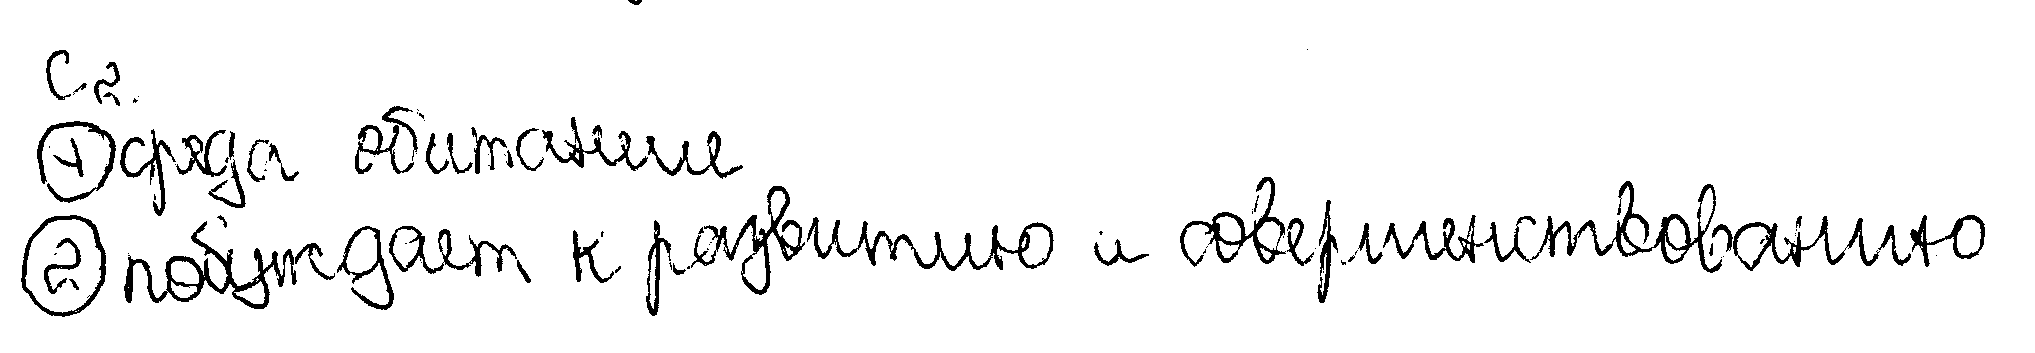 С2.
① среда обитание
② побуждает к развитию и совершенствованию